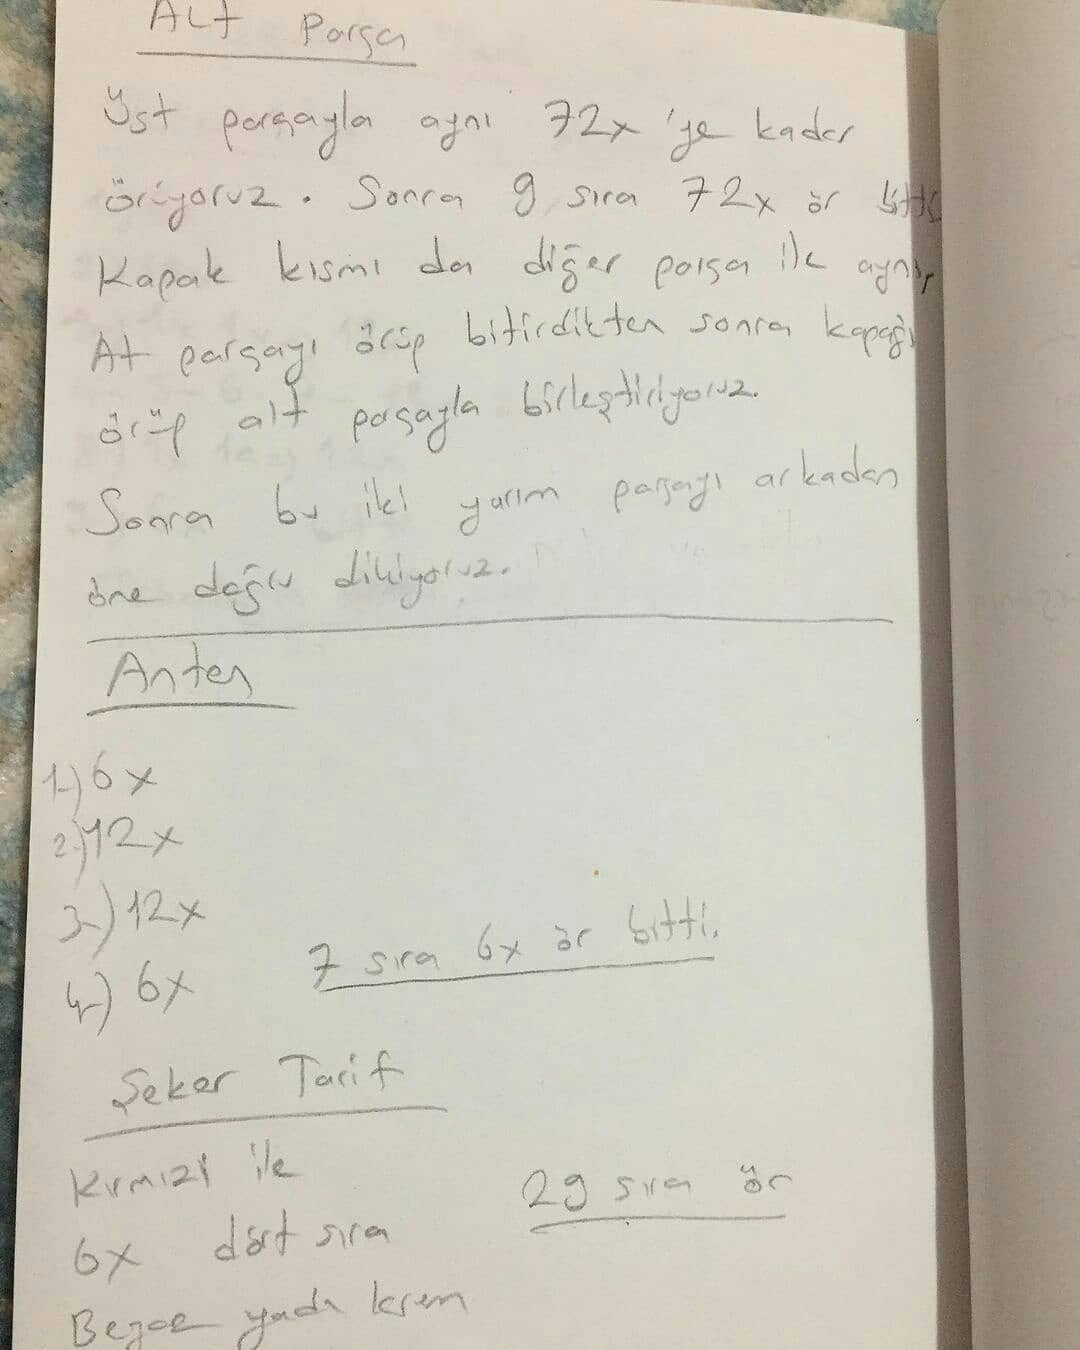 Alt Parça
Üst parçayla aynı 72x 'ye kadar
örüyoruz. Sonra 9 sıra 72x ör bitti
Kapak kısmı da diğer parça ile aynı,
At parçayı örüp bitirdikten sonra kapağı
örüp alt parçayla birleştiriyoruz.
Sonra bu iki yarım parçayı arkadan
öne doğru dikiyoruz.
Anten
1-) 6x
2-) 12x
3-) 12x
7 sıra 6x ör bitti.
4-) 6x
Şeker Tarif
Kırmızı ile
29 sıra ör
6x dört sıra
Beyaz yada krem